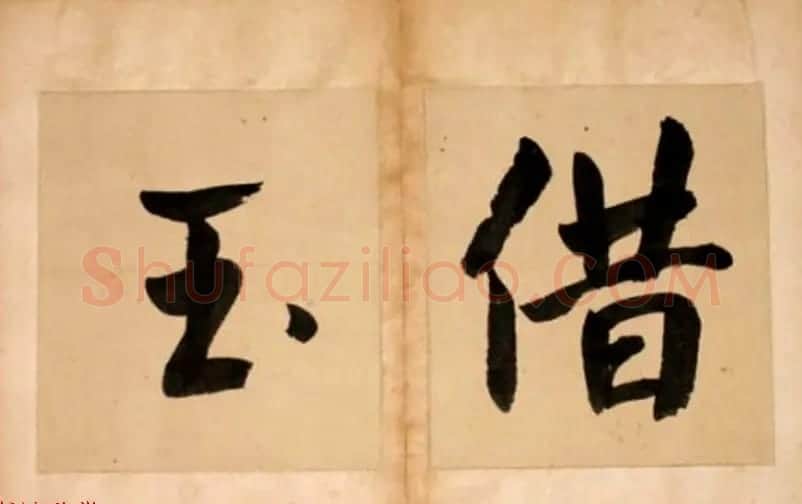 借玉
Shufaziliao.COM